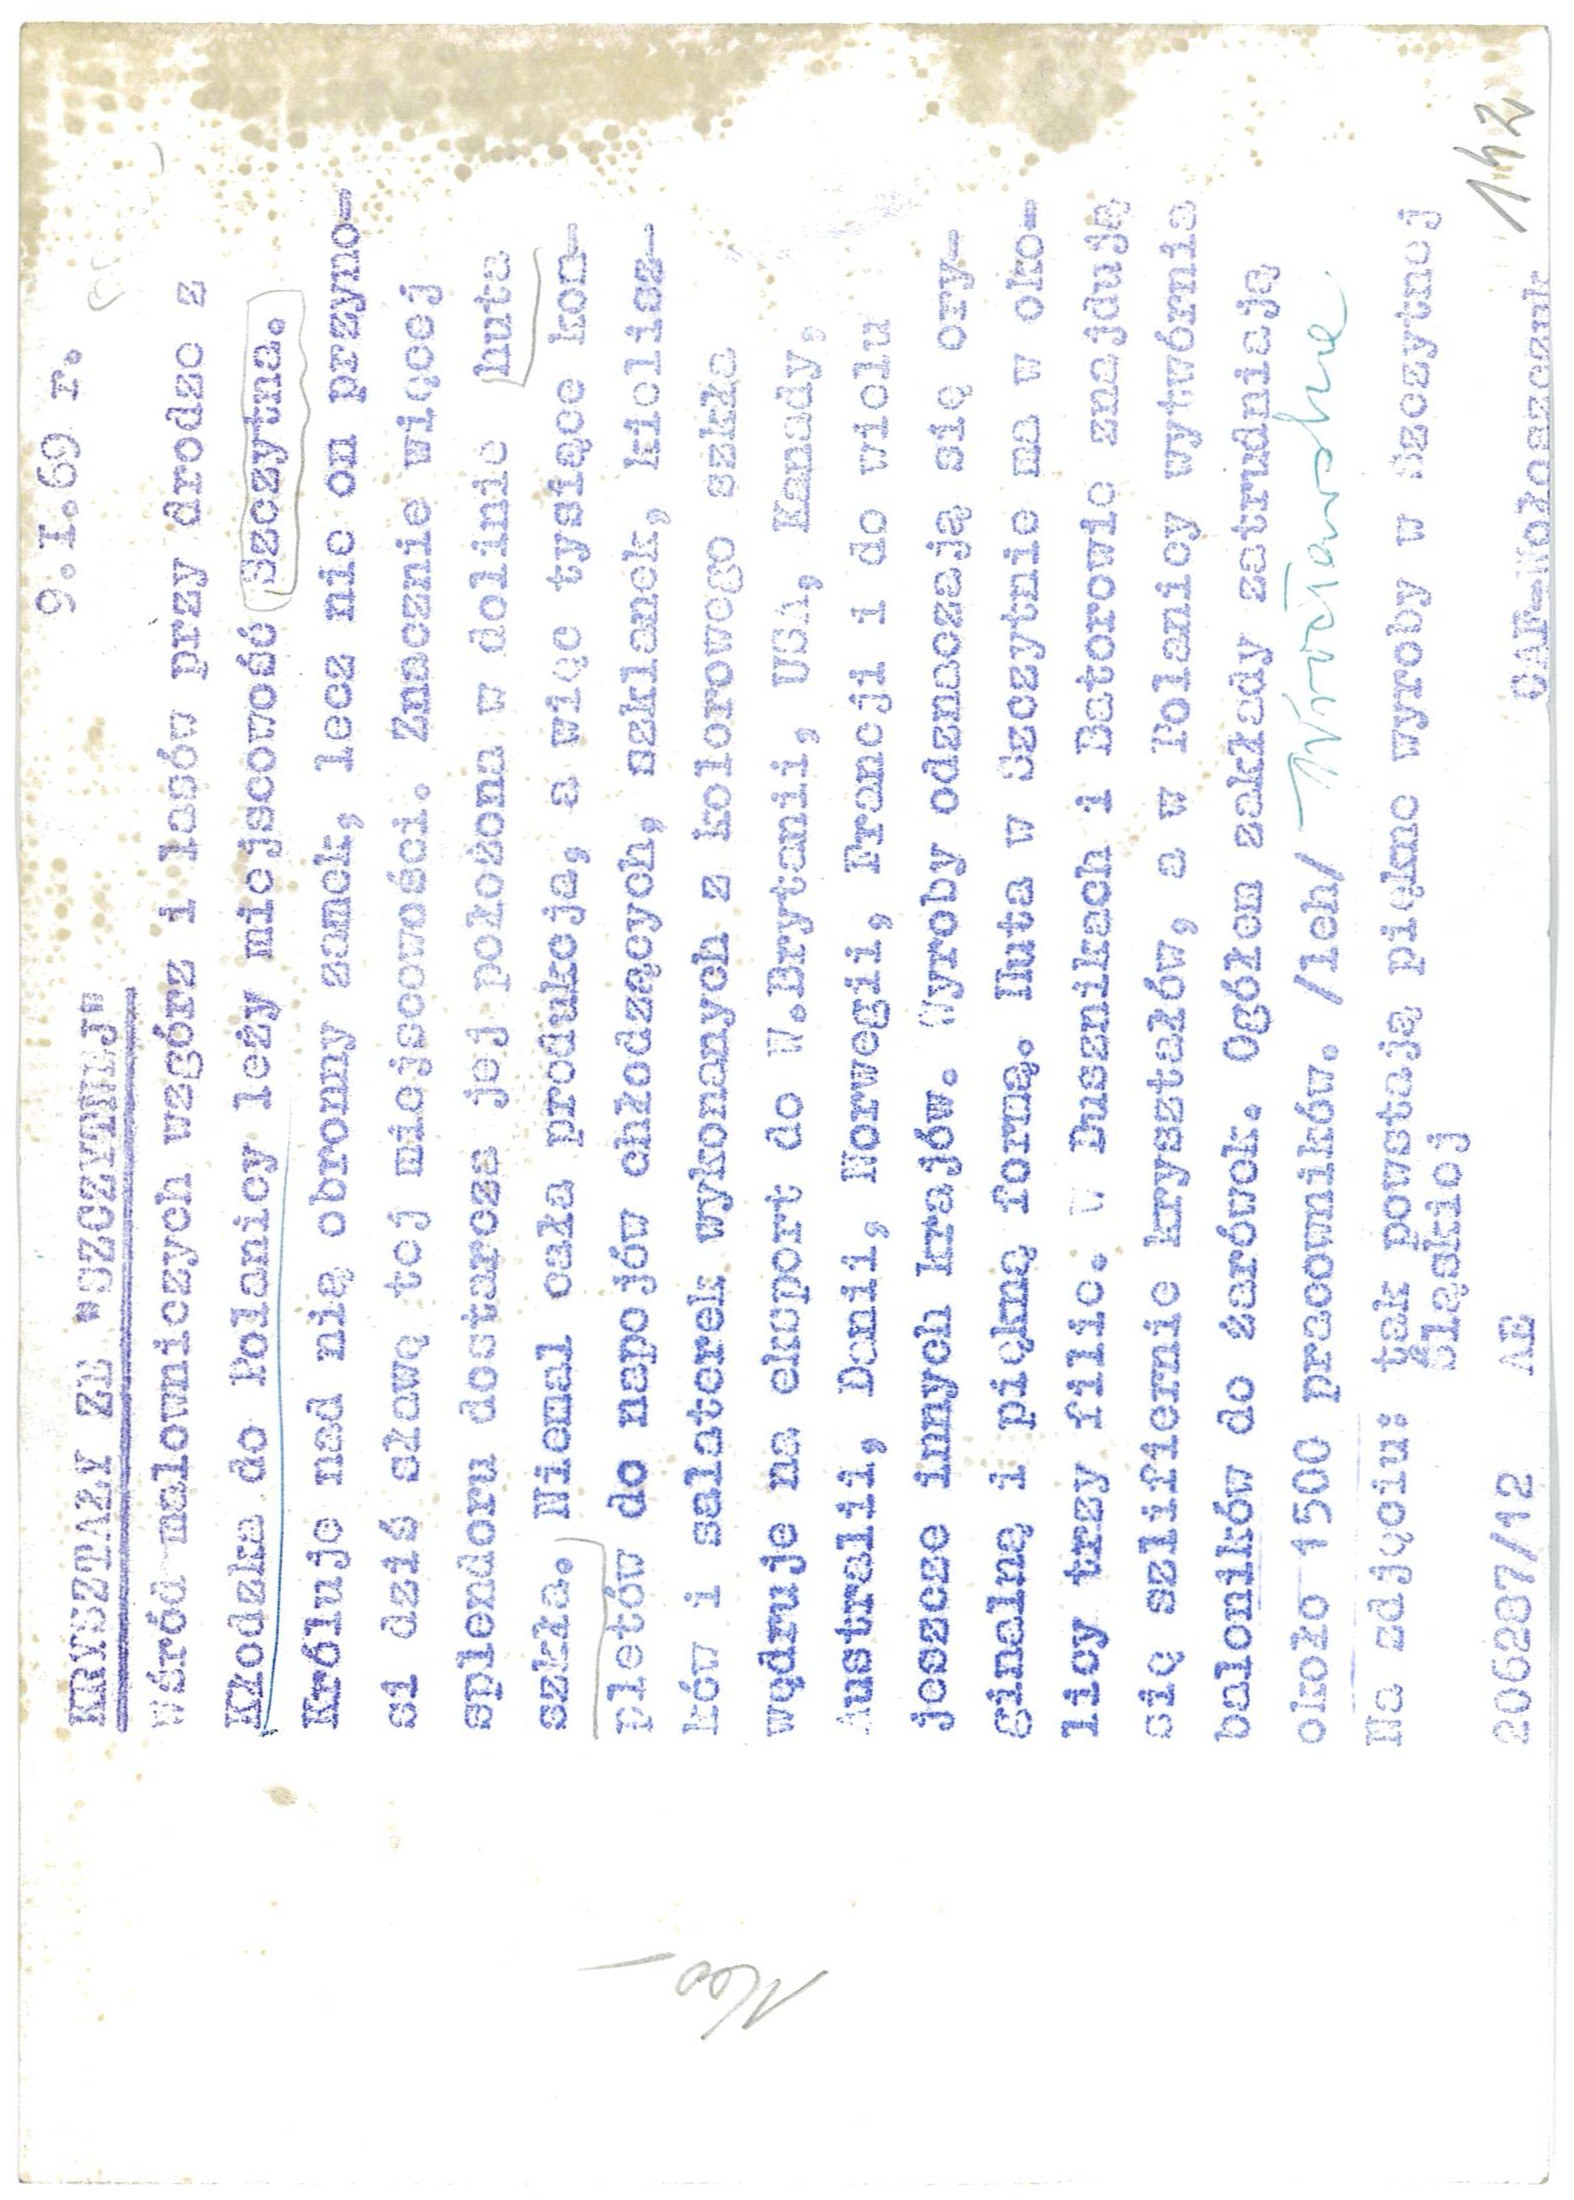 9.I.69 r.
KRYSZTAŁY ZE "SZCZYTNEJ"
Wśród malowniczych wzgórz i lasów przy drodze z
Kłodzka do Polanicy leży miejscowość Szczytna.
Króluje nad nią obronny zamek, lecz nie on przyno-
si dziś sławę tej miejscowości. Znacznie więcej
splendoru dostarcza jej położona w dolinie huta
szkła. Niemal cała produkcja, a więc tysiące kom-
pletów do napojów chłodzących, szklanek, kielisz-
ków i salaterek wykonanych z kolorowego szkła
wędruje na eksport do W.Brytanii, USA, Kanady,
Australii, Danii, Norwegii, Francji i do wielu
jeszcze innych krajów. Wyroby odznaczają się ory-
ginalną i piękną formą. Huta w Szczytnie ma w oko-
licy trzy filie. W Dusznikach i Batorowie znajdują
się szlifiernie kryształów, a w Polanicy wytwórnia
baloników do żarówek. Ogółem zakłady zatrudniają
około 1500 pracowników. /leh/ Wrocławskie
Na zdjęciu: tak powstają piękne wyroby w Szczytnej
Śląskiej
206287/12 AE CAF-Wołoszczuk
142